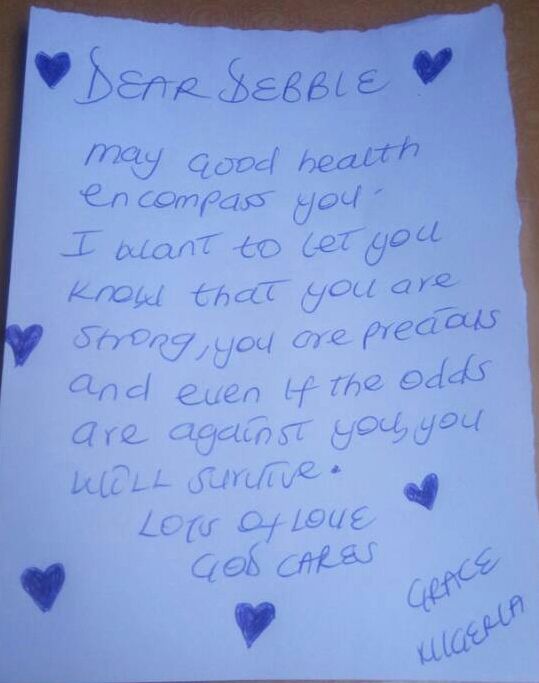 DEAR DEBBIE
may good health
encompass you.
I want to let you
know that you are
strong, you are precious
and even if the odds
are against you, you
will survive.
LOTS OF LOVE
GOD CARES
GRACE
NIGERIA